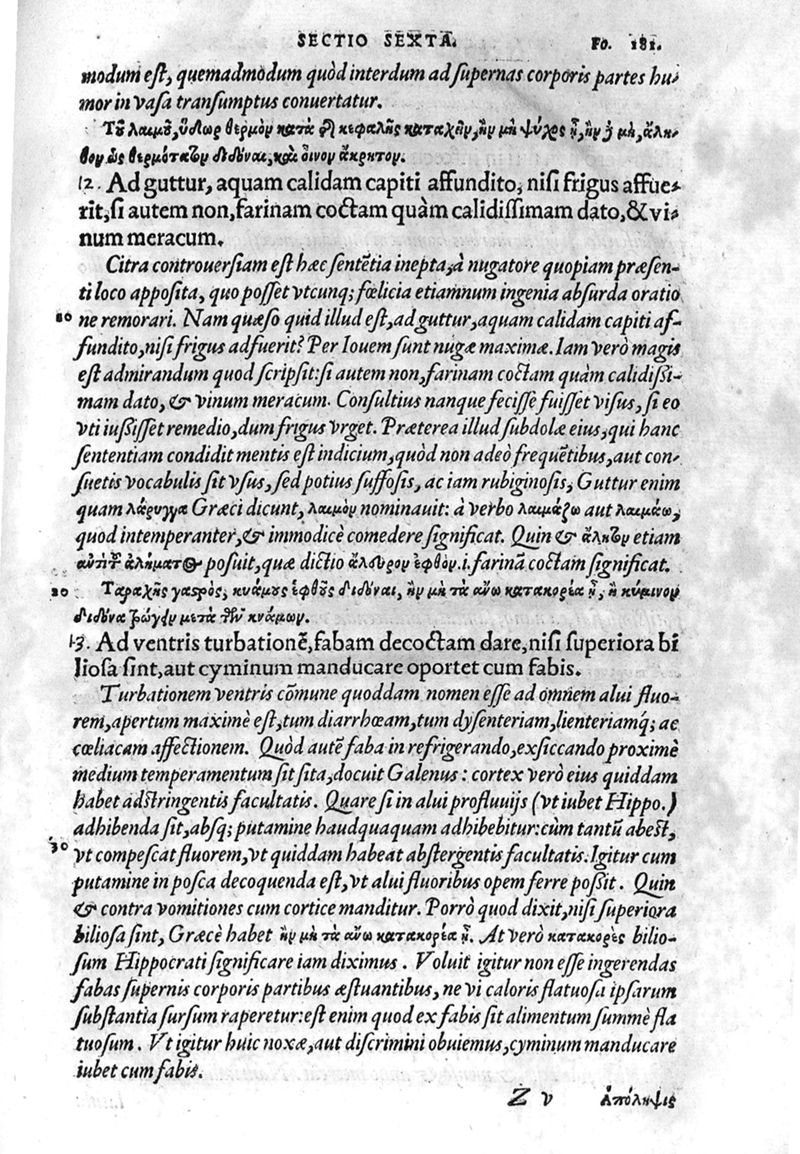 SECTIO SEXTA. FO. 181.
modum eſt, quemadmodum quòd interdum ad ſupernas corporis partes hu-
mor in vaſa tranſumptus conuertatur.
Τοῦ λαιμοῦ, ὕδωρ θερμὸν κατὰ τῆς κεφαλῆς καταχεῖν, ἢν μὴ ψύχος ᾖ, ἢν δὲ μὴ, ἄλη-
θον ὡς θερμότατον διδόναι, καὶ οἶνον ἄκρητον.
12. Ad guttur, aquam calidam capiti affundito, niſi frigus affue-
rit, ſi autem non, farinam coctam quàm calidiſsimam dato, & vi-
num meracum.
Citra controuerſiam eſt hæc ſentētia inepta, à nugatore quopiam præſen-
ti loco appoſita, quo poſſet vtcunq; fœlicia etiamnum ingenia abſurda oratio
10 ne remorari. Nam quæſo quid illud eſt, ad guttur, aquam calidam capiti af-
fundito, niſi frigus adfuerit? Per Iouem ſunt nugæ maximæ. Iam verò magis
eſt admirandum quod ſcripſit: ſi autem non, farinam coctam quàm calidißi-
mam dato, & vinum meracum. Conſultius nanque feciſſe fuiſſet viſus, ſi eo
vti iußiſſet remedio, dum frigus vrget. Præterea illud ſubdolæ eius, qui hanc
ſententiam condidit mentis eſt indicium, quòd non adeò frequētibus, aut con-
ſuetis vocabulis ſit vſus, ſed potius ſuffoſis, ac iam rubiginoſis, Guttur enim
quam λάρυγγα Græci dicunt, λαιμὸν nominauit: à verbo λαιμάζω aut λαιμάω,
quod intemperanter, & immodicè comedere ſignificat. Quin & ἄλητον etiam
ἀντὶ τοῦ ἀλήματος poſuit, quæ dictio ἄλευρον ἑφθὸν .i. farinā coctam ſignificat.
20 Ταραχῆς γαστρὸς, κυάμους ἑφθοὺς διδόναι, ἢν μὴ τὰ ἄνω κατακορέα ᾖ, ἢ κύμινον
διδόναι τρώγειν μετὰ τῶν κυάμων.
13. Ad ventris turbationē, fabam decoctam dare, niſi ſuperiora bi
lioſa ſint, aut cyminum manducare oportet cum fabis.
Turbationem ventris cōmune quoddam nomen eſſe ad omnem alui fluo-
rem, apertum maximè eſt, tum diarrhœam, tum dyſenteriam, lienteriamq; ac
cœliacam affectionem. Quòd autē faba in refrigerando, exſiccando proximè
medium temperamentum ſit ſita, docuit Galenus: cortex verò eius quiddam
habet adſtringentis facultatis. Quare ſi in alui profluuijs (vt iubet Hippo.)
adhibenda ſit, abſq; putamine haudquaquam adhibebitur: cùm tantū abeſt,
30 vt compeſcat fluorem, vt quiddam habeat abſtergentis facultatis. Igitur cum
putamine in poſca decoquenda eſt, vt alui fluoribus opem ferre poßit. Quin
& contra vomitiones cum cortice manditur. Porrò quod dixit, niſi ſuperiora
bilioſa ſint, Græcè habet ἢν μὴ τὰ ἄνω κατακορέα ᾖ. At verò κατακορὲς bilio-
ſum Hippocrati ſignificare iam diximus. Voluit igitur non eſſe ingerendas
fabas ſupernis corporis partibus æſtuantibus, ne vi caloris flatuoſa ipſarum
ſubſtantia ſurſum raperetur: eſt enim quod ex fabis fit alimentum ſummè fla
tuoſum. Vt igitur huic noxæ, aut diſcrimini obuiemus, cyminum manducare
iubet cum fabis.
Z v ἀπόληψις